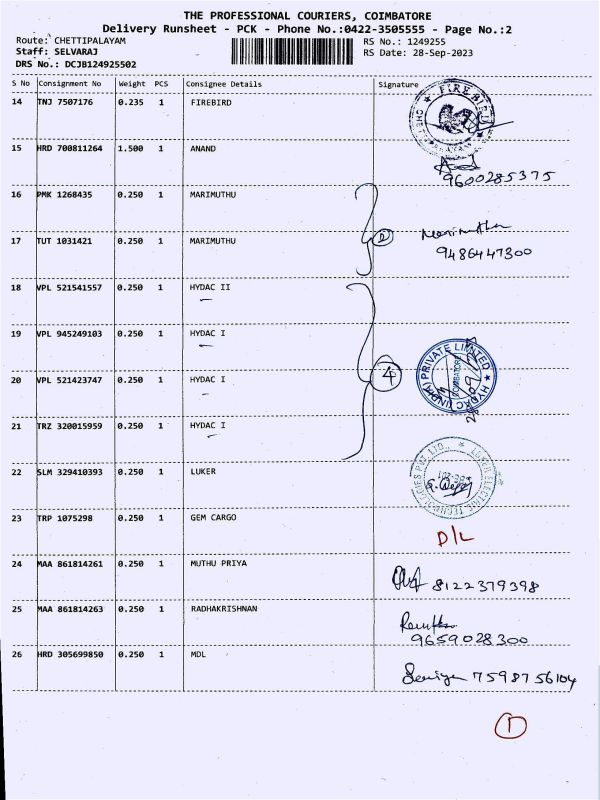 THE PROFESSIONAL COURIERS, COIMBATORE
Delivery Runsheet - PCK - Phone No.:0422-3505555 - Page No.:2
Route: CHETTIPALAYAM RS No.: 1249255
Staff: SELVARAJ RS Date: 28-Sep-2023
DRS No.: DCJB124925502
S No Consignment No Weight PCS Consignee Details Signature
14 TNJ 7507176 0.235 1 FIREBIRD
FIRE BIRD
15 HRD 700811264 1.500 1 ANAND
9600285375
16 PMK 1268435 0.250 1 MARIMUTHU
Marimuthu
17 TUT 1031421 0.250 1 MARIMUTHU 2
9486447300
18 VPL 521541557 0.250 1 HYDAC II
19 VPL 945249103 0.250 1 HYDAC I
HYDAC (INDIA) PRIVATE LIMITED
COIMBATORE
20 VPL 521423747 0.250 1 HYDAC I 4
21 TRZ 320015959 0.250 1 HYDAC I
22 SLM 329410393 0.250 1 LUKER
LUKER ELECTRIC TECHNOLOGIES PVT. LTD.,
23 TRP 1075298 0.250 1 GEM CARGO
D/L
24 MAA 861814261 0.250 1 MUTHU PRIYA
8122379398
25 MAA 861814263 0.250 1 RADHAKRISHNAN
9659028300
26 HRD 305699850 0.250 1 MDL
7598756104
1